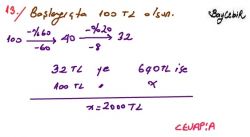 13.) Başlangıçta 100 TL olsun.
BayÇebir
100 -%60→ 40 -%20→ 32
-60 -8
32 TL ye 640 TL ise
100 TL x
x = 2000 TL
CEVAP: A